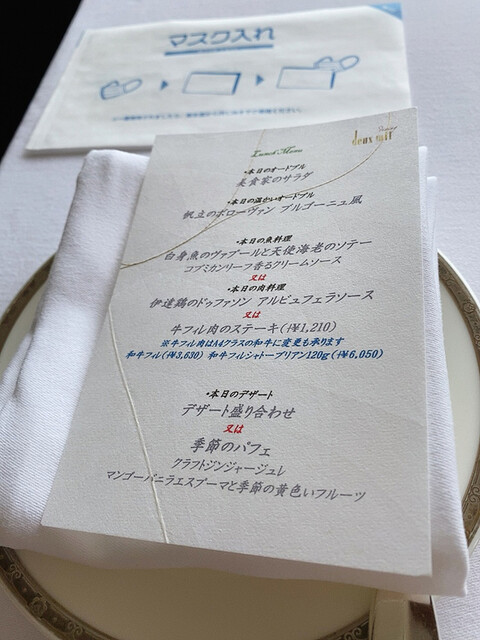 マスク入れ
Lunch Menu
deux mil
・本日のオードブル
美食家のサラダ
・本日の温かいオードブル
帆立のボローヴァン ブルゴーニュ風
・本日の魚料理
白身魚のヴァプールと天使海老のソテー
コブミカンリーフ香るクリームソース
又は
・本日の肉料理
伊達鶏のドゥファソン アルビュフェラソース
又は
牛フィレ肉のステーキ(+¥1,210)
※牛フィレ肉はA4クラスの和牛に変更も承ります
和牛フィレ(+¥3,630) 和牛フィレシャトーブリアン120g(+¥6,050)
・本日のデザート
デザート盛り合わせ
又は
季節のパフェ
クラフトジンジャージュレ
マンゴーバニラエスプーマと季節の黄色いフルーツ